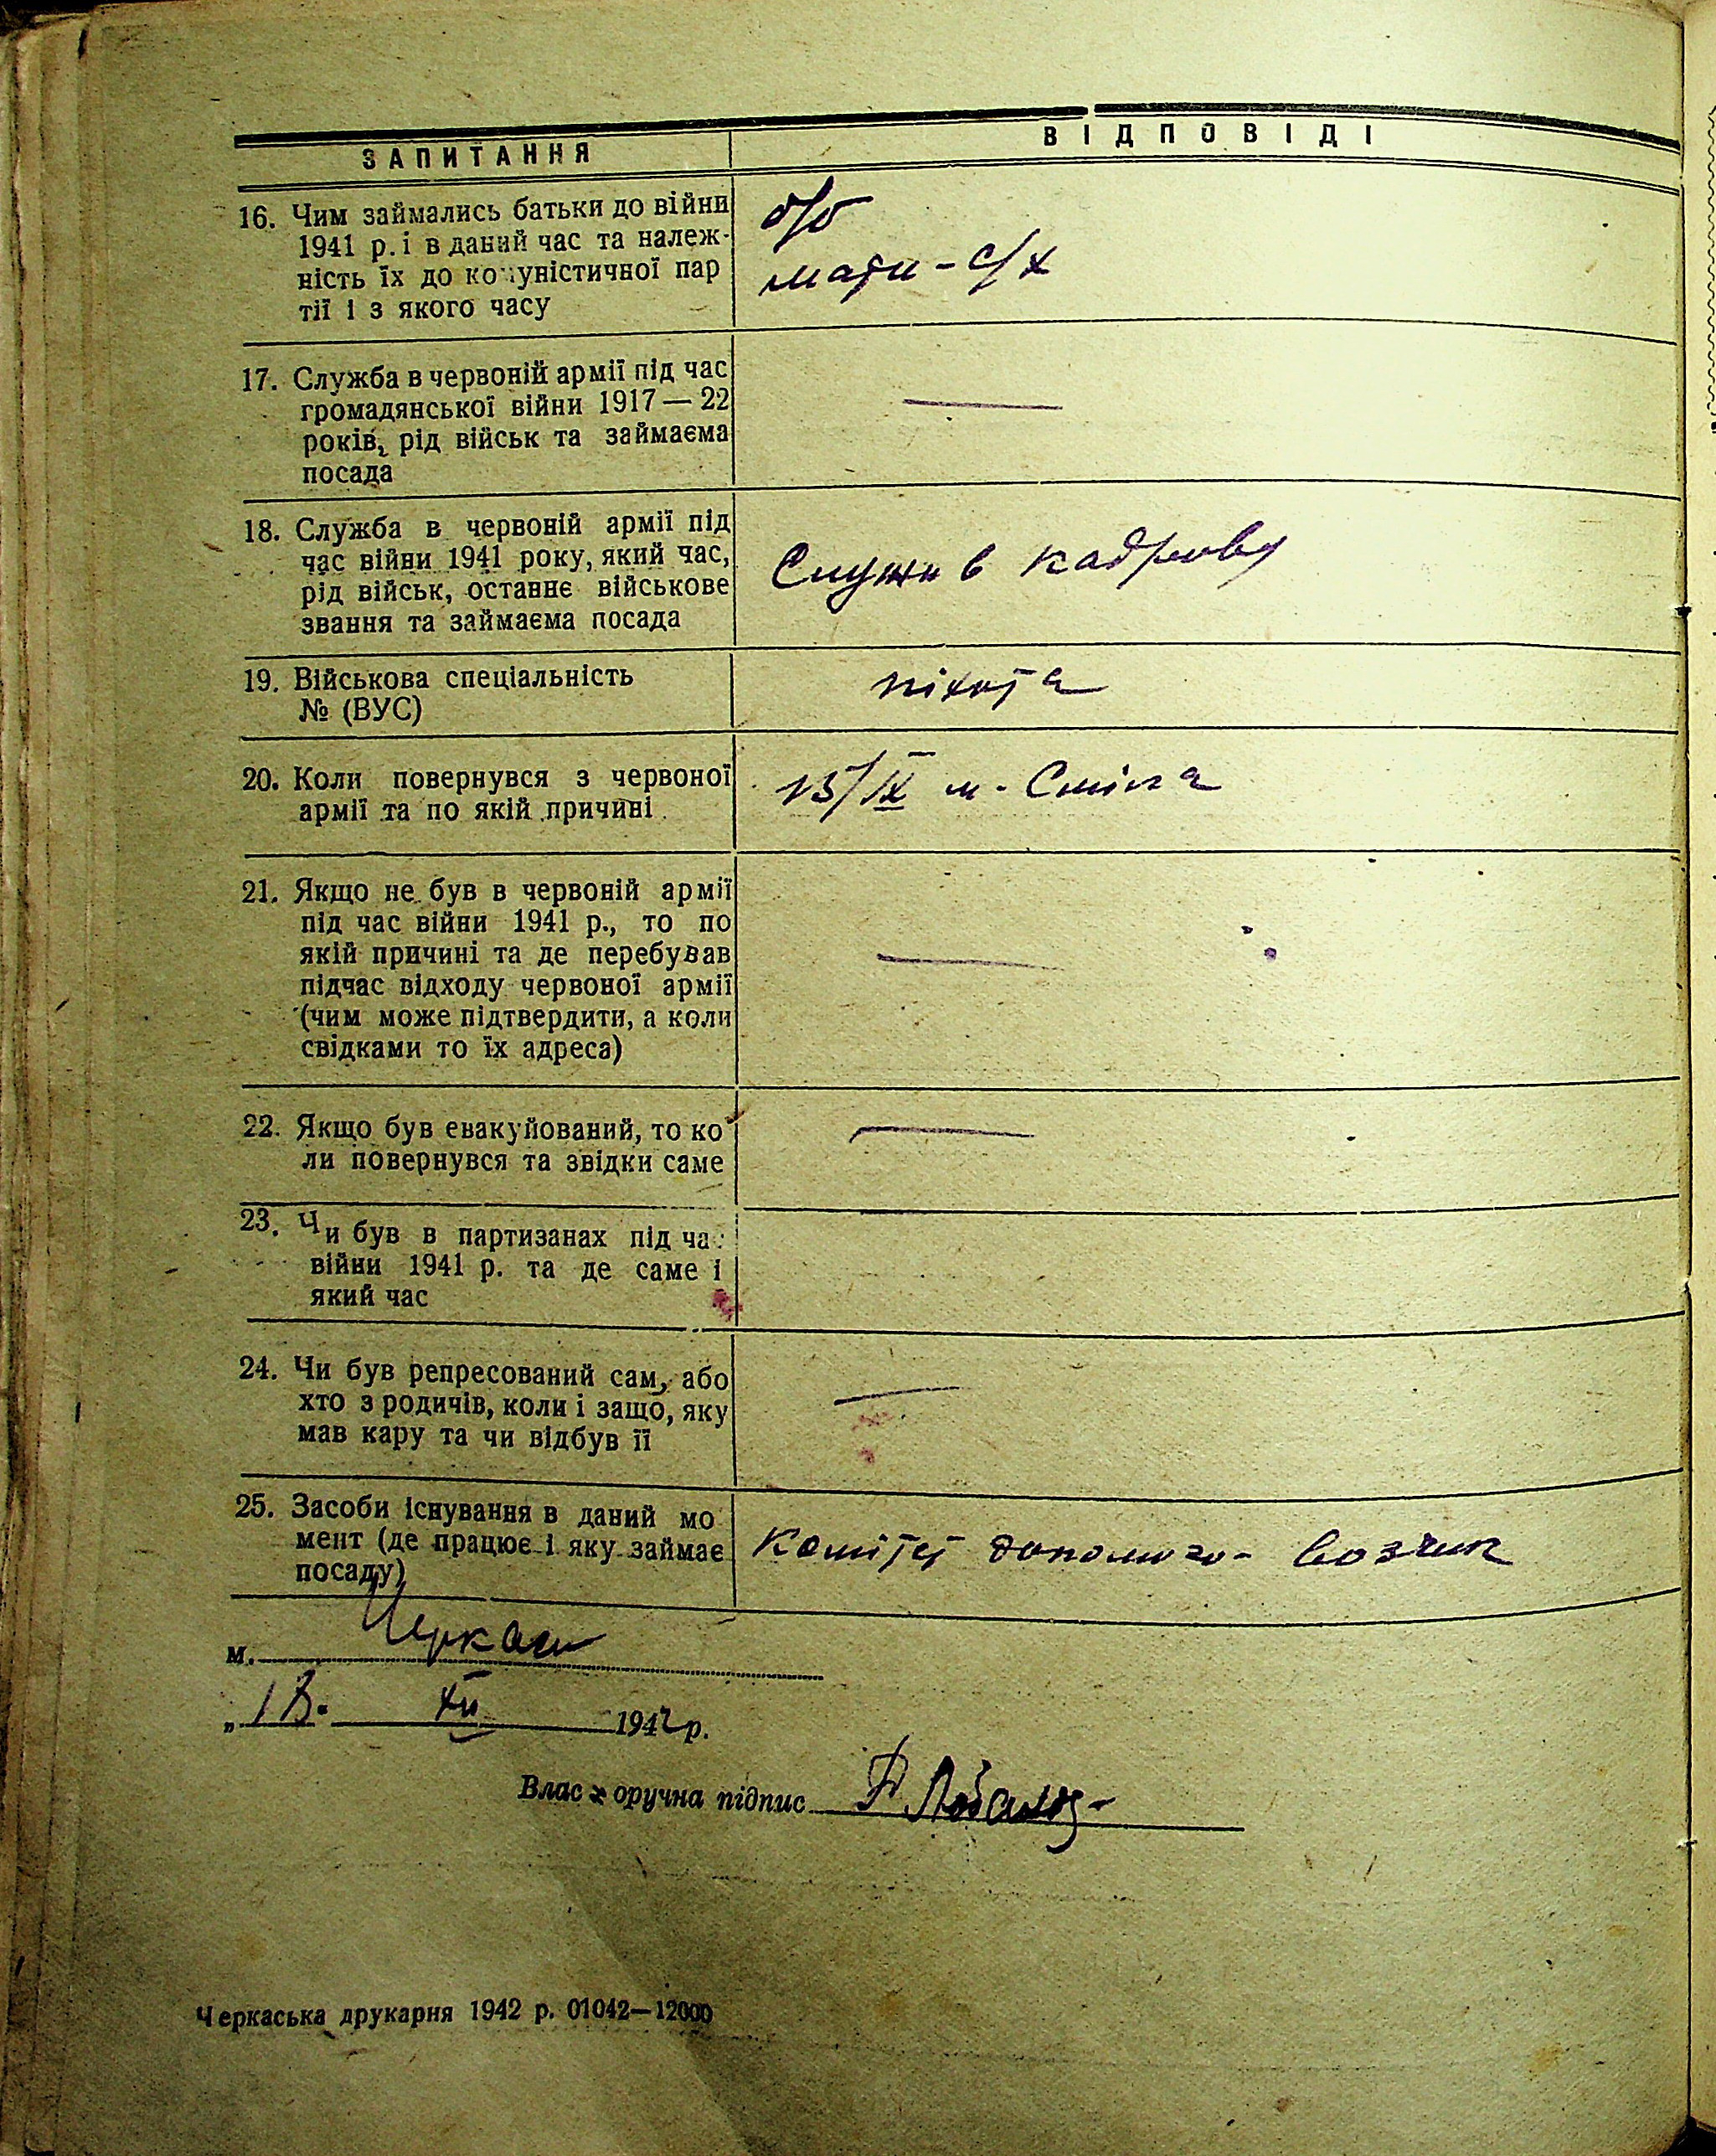 ЗАПИТАННЯ
ВІДПОВІДІ
16. Чим займались батьки до війни
1941 р. і в даний час та належ-
ність їх до комуністичної пар
тії і з якого часу
б/б
мати - с/х
17. Служба в червоній армії під час
громадянської війни 1917 — 22
років, рід військ та займаєма
посада
—
18. Служба в червоній армії під
час війни 1941 року, який час,
рід військ, останнє військове
звання та займаєма посада
Служив кадрову
19. Військова спеціальність
№ (ВУС)
піхота
20. Коли повернувся з червоної
армії та по якій причині
15/IX м. Сміла
21. Якщо не був в червоній армії
під час війни 1941 р., то по
якій причині та де перебував
підчас відходу червоної армії
(чим може підтвердити, а коли
свідками то їх адреса)
—
22. Якщо був евакуйований, то ко
ли повернувся та звідки саме
—
23. Чи був в партизанах під час
війни 1941 р. та де саме і
який час
24. Чи був репресований сам, або
хто з родичів, коли і защо, яку
мав кару та чи відбув її
—
25. Засоби існування в даний мо
мент (де працює і яку займає
посаду)
Комітет допомого- возчик
м. Черкаси
„18. XII 1942 р.
Власноручна підпис
Черкаська друкарня 1942 р. 01042—12000